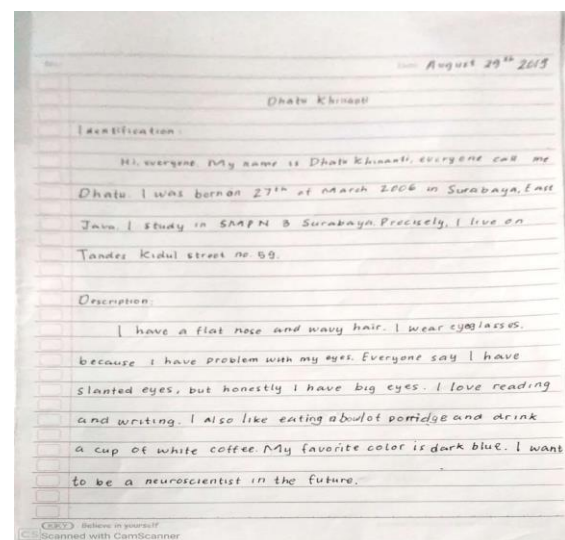 No:
Date: August 29th 2019
Dhatu Khinanti
Identification:
Hi, everyone. My name is Dhatu Khinanti, everyone call me
Dhatu. I was born on 27th of March 2006 in Surabaya, East
Java. I study in SMPN 3 Surabaya. Precisely, I live on
Tandes Kidul street no. 59.
Description:
I have a flat nose and wavy hair. I wear eyeglasses.
because I have problem with my eyes. Everyone say I have
slanted eyes, but honestly I have big eyes. I love reading
and writing. I also like eating a bowl of porridge and drink
a cup of white coffee. My favorite color is dark blue. I want
to be a neuroscientist in the future.
KEY Believe in yourself
CS Scanned with CamScanner